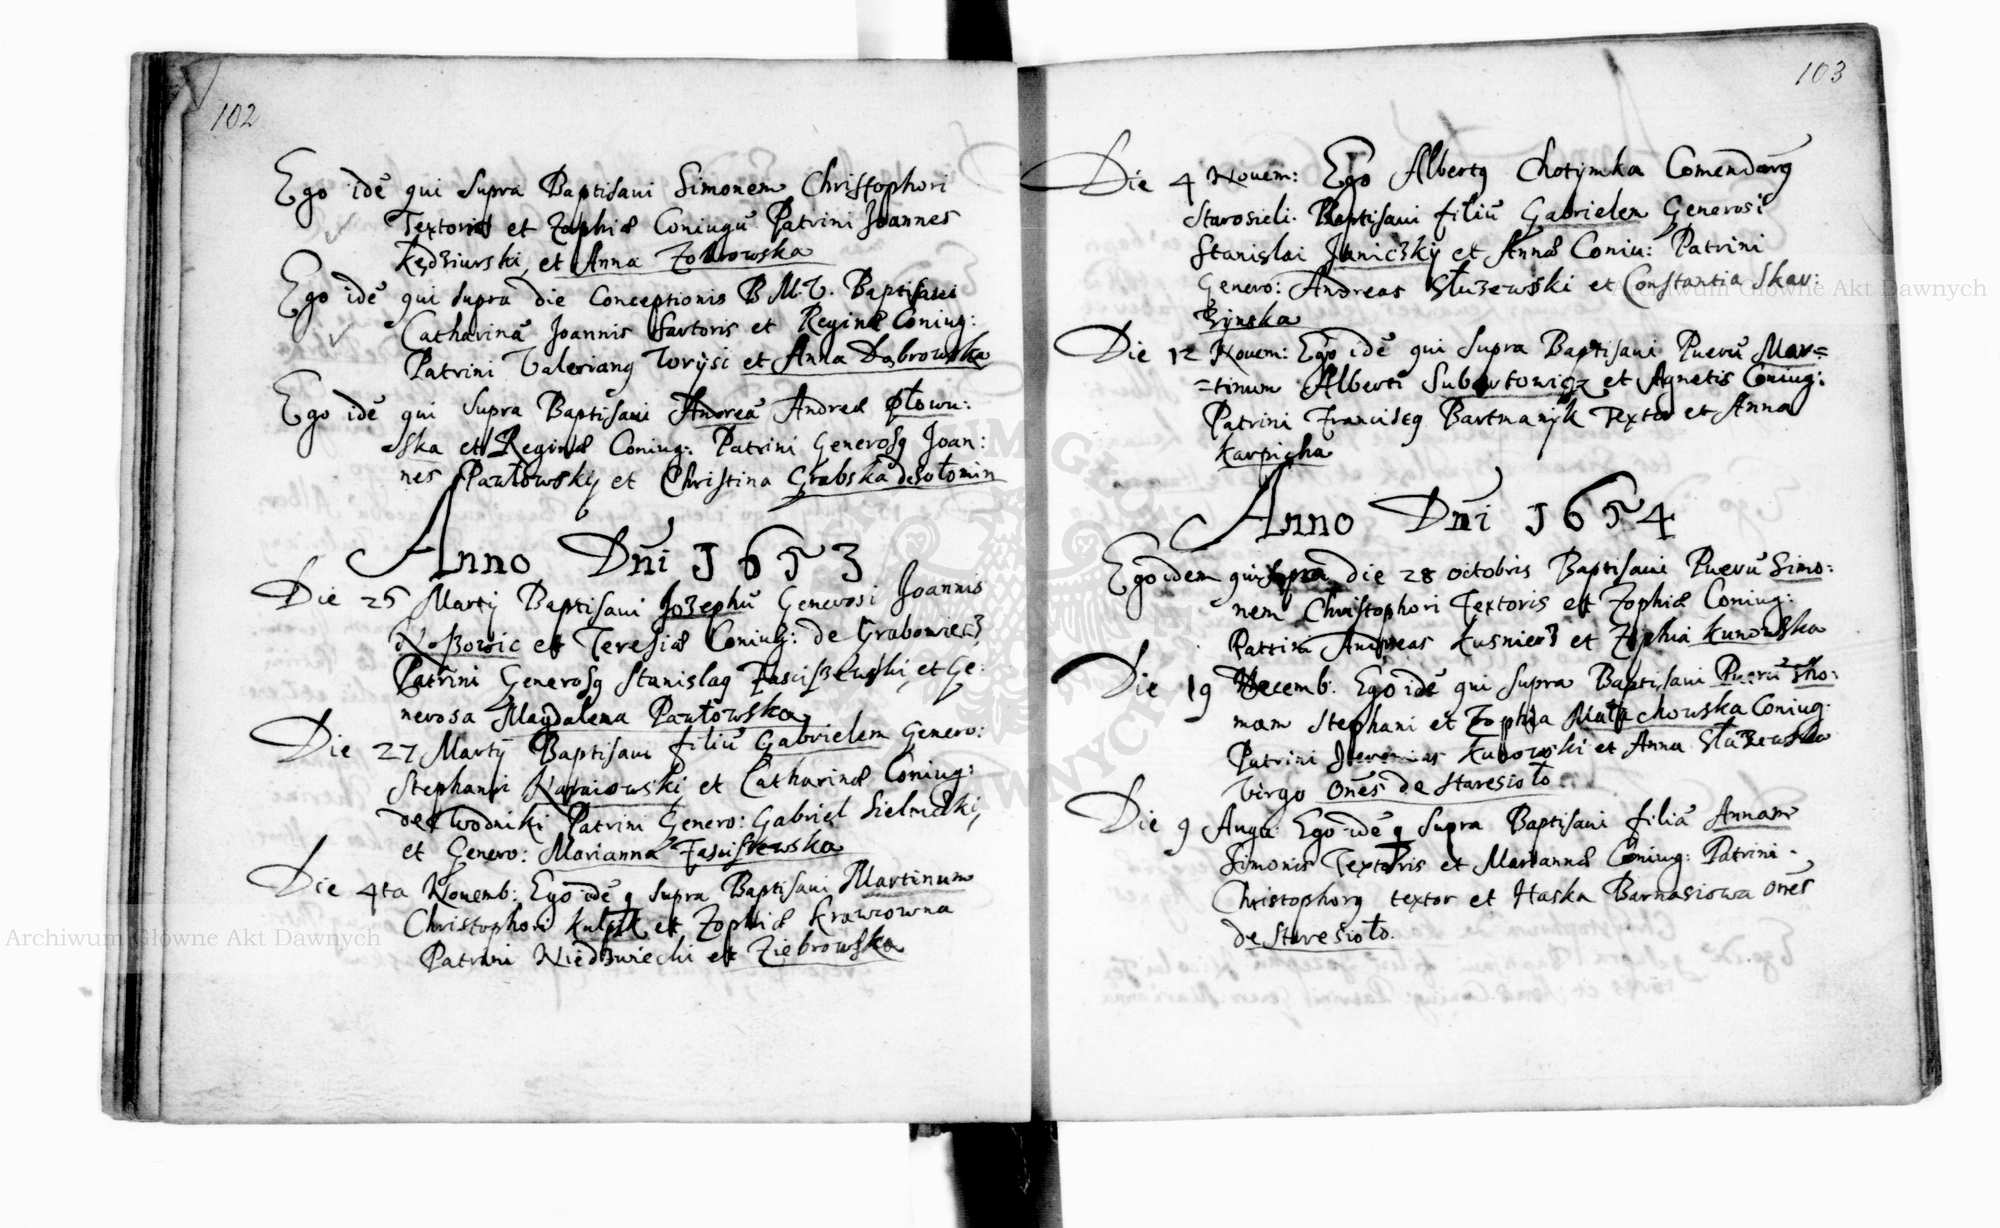 102
Ego idē qui supra Baptisaui Simonem Christophori
Textoris et Zophiæ Coniugū Patrini Joannes
Kędziurski et Anna Zobrowska
Ego idē qui supra die Conceptionis B M. V. Baptisaui
Catharinā Joannis Sartoris et Reginæ Coniug:
Patrini Valerianq Torÿsi et Anna Dąbrowska
Ego idē qui supra Baptisaui Andreā Andreæ Płowu:
ska et Reginæ Coniug: Patrini Generosq Joan:
nes Pawłowskÿ et Christina Grabska de Sułomin
Anno Dn̄i 1653
Die 25 Martÿ Baptisaui Jozephū Generosi Joannis
Noßowic et Teresiæ Coniug: de Grabowiecz
Patrini Generosq Stanislaq Jasciszewski et Ge:
nerosa Magdalena Pawłowska
Die 27 Martÿ Baptisaui filiū Gabrielem Genero:
Stephani et Catharinæ Coniug:
de Wodniki Patrini Genero: Gabriel Sielnicki
et Genero: Marianna Jasciszewska
Die 4ta Nouemb: Ego idē q supra Baptisaui Martinum
Christophori Kulpik et Zophiæ Krawcowna
Patrini Niedzwiecki et Ziębrowska
103
Die 4 Nouem: Ego Albertq Chotÿmka Comendarq
Starosieli. Baptisaui filiū Gabrielem Generosi
Stanislai Janiczkÿ et Annæ Coniu: Patrini
Genero: Andreas Służewski et Constantia Skar:
zÿnska
Die 12 Nouem: Ego idē qui supra Baptisaui Puerū Mar=
=tinum Alberti Subortowicz et Agnetis Coniug:
Patrini Franciscq Bartmanÿk Textor et Anna
Karpicha
Anno Dn̄i 1654
Ego idem qui supra die 28 Octobris Baptisaui Puerū Simo:
nem Christophori Textoris et Zophiæ Coniug:
Patrini Andreas Kusnierz et Zophia Kunowska
Die 19 Decemb. Ego idē qui supra Baptisaui Puerū Tho:
mam Stephani et Zophia Małachowska Coniug:
Patrini Jeremias Kurowski et Anna Służewska
Virgo On̄es de Staresioło
Die 9 Augu: Ego idē q supra Baptisaui filiā Annam
Simonis Textoris et Mariannæ Coniug: Patrini
Christophorq textor et Haska Barnasiowa on̄es
de Staresioło.
Archiwum Główne Akt Dawnych
Archiwum Główne Akt Dawnych